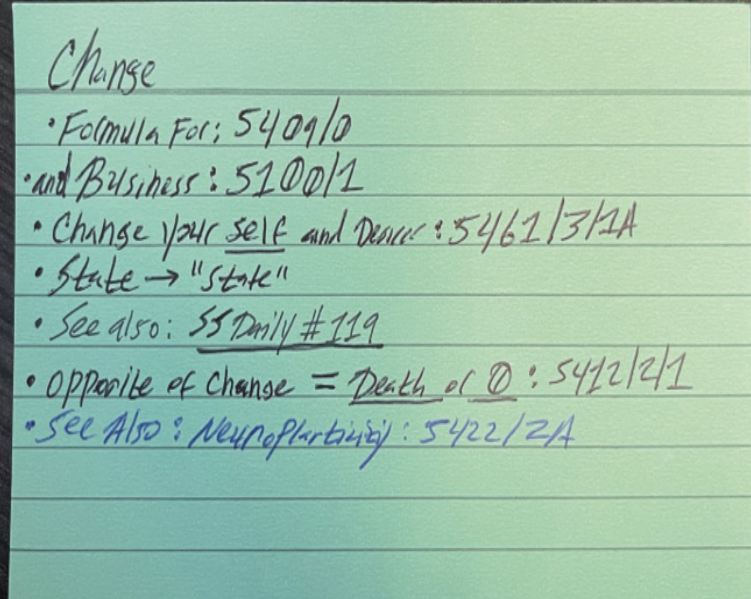 Change
• Formula For: 5409/0
• and Business: 5100/1
• Change your self and : 5461/3/1A
• State → "State"
• See also: SS Daily #119
• Opposite of Change = Death or 0 : 5412/2/1
• See Also: Neuroplasticity: 5422/2A